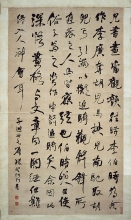 凡書畫當觀韻往時李伯時為余
作李廣奪胡兒馬挾兒南馳取胡
兒弓引滿以擬追騎觀箭鋒所直
發之人馬皆應弦也伯時笑曰使俗
子為之當作中箭追騎矣余因此
深悟畫格此與文章同一關紐但難
得人入神會耳